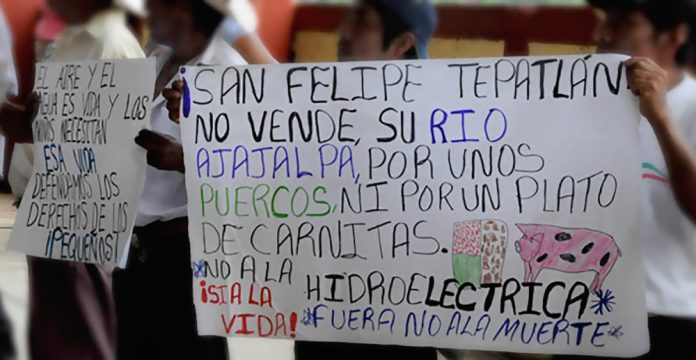 EL AIRE Y EL
AGUA ES VIDA Y LOS
NIÑOS NECESITAN
ESA VIDA
DEFENDAMOS LOS
DERECHOS DE LOS
¡PEQUEÑOS!
¡SAN FELIPE TEPATLÁN
NO VENDE, SU RIO
AJAJALPA, POR UNOS
PUERCOS, NI POR UN PLATO
DE CARNITAS.
*NO A LA HIDROELECTRICA*
¡SI A LA VIDA!
*FUERA NO A LA MUERTE*